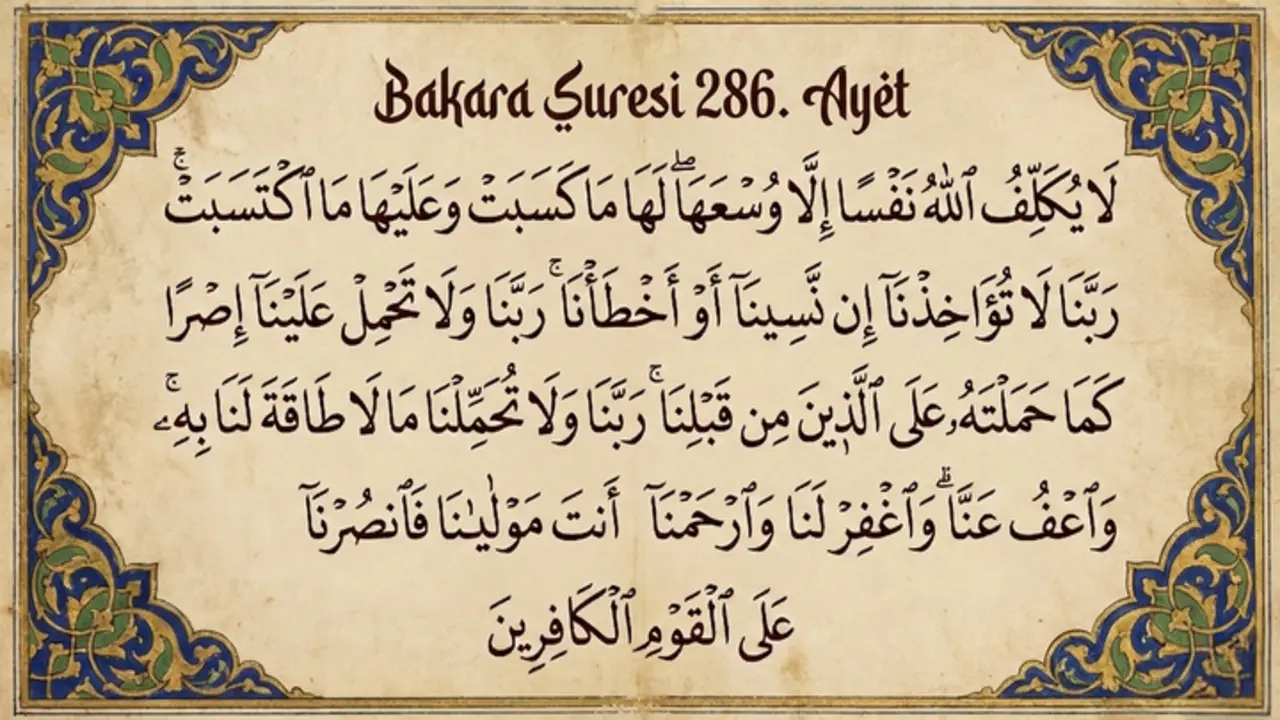 Bakara Suresi 286. Ayet
لَا يُكَلِّفُ ٱللَّهُ نَفْسًا إِلَّا وُسْعَهَاۖ لَهَا مَا كَسَبَتْ وَعَلَيْهَا مَا ٱكْتَسَبَتْۚ
رَبَّنَا لَا تُؤَاخِذْنَآ إِن نَّسِينَآ أَوْ أَخْطَأْنَاۚ رَبَّنَا وَلَا تَحْمِلْ عَلَيْنَآ إِصْرًا
كَمَا حَمَلْتَهُۥ عَلَى ٱلَّذِينَ مِن قَبْلِنَاۚ رَبَّنَا وَلَا تُحَمِّلْنَا مَا لَا طَاقَةَ لَنَا بِهِۦۚ
وَٱعْفُ عَنَّاۗ وَٱغْفِرْ لَنَا وَٱرْحَمْنَآ أَنتَ مَوْلَىٰنَا فَٱنصُرْنَآ
عَلَى ٱلْقَوْمِ ٱلْكَافِرِينَ